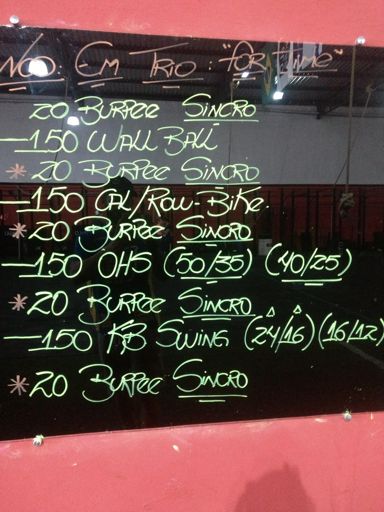 Em Trio: "For Time"
20 Burpee Sincro
—150 Wall Ball
* 20 Burpee Sincro
—150 Cal/Row-Bike.
* 20 Burpee Sincro
—150 OHS (50/35) (40/25)
* 20 Burpee Sincro
—150 KB Swing (24/16) (16/12)
* 20 Burpee Sincro